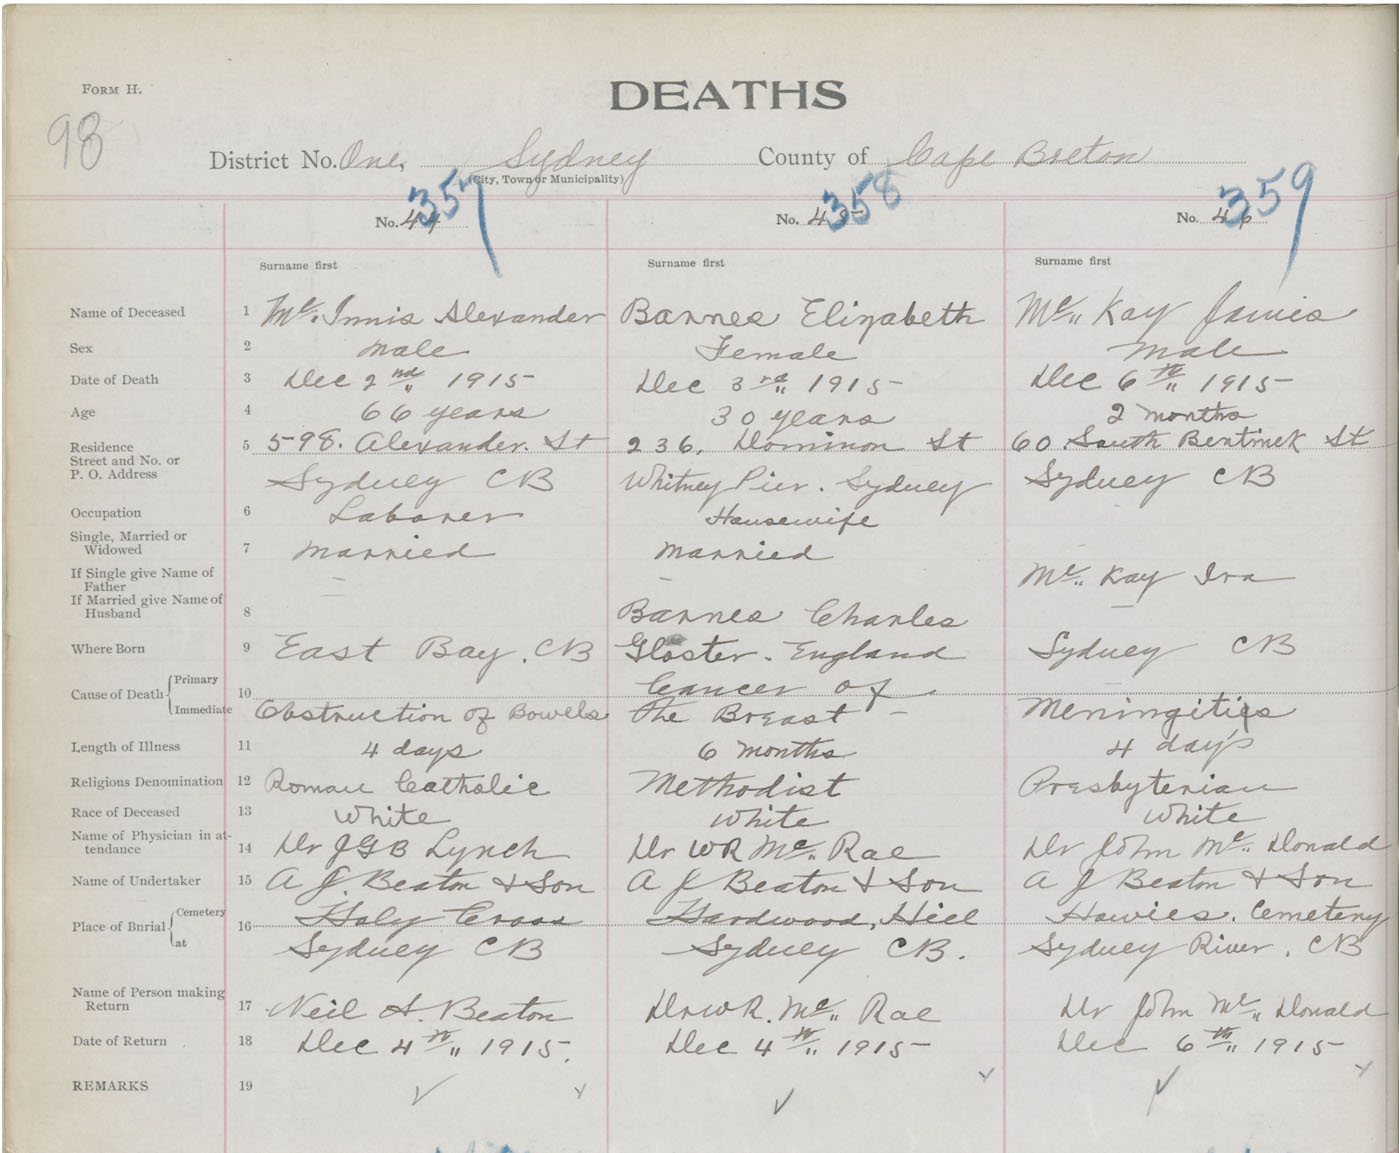 FORM H.
DEATHS
98
District No. One, Sydney County of Cape Breton
(City, Town or Municipality)
357 358 359
No. 44 No. 45 No. 46
Surname first Surname first Surname first
Name of Deceased 1 Mc Innis Alexander Barnes Elizabeth Mc Kay James
Sex 2 Male Female Male
Date of Death 3 Dec 2nd 1915 Dec 3rd 1915 Dec 6th 1915
Age 4 66 years 30 years 2 months
Residence 5 598. Alexander. St 236, Dominon St 60 South Bentinck St
Street and No. or
P. O. Address Sydney CB Whitney Pier. Sydney Sydney CB
Occupation 6 Laborer Housewife
Single, Married or
Widowed 7 Married Married
If Single give Name of
Father — — Mc Kay Ira
If Married give Name of
Husband 8 — Barnes Charles —
Where Born 9 East Bay. CB Gloster. England Sydney CB
Cause of Death Primary 10 Cancer of
Immediate Obstruction of Bowels the Breast – Meningitis
Length of Illness 11 4 days 6 months 4 days
Religious Denomination 12 Roman Catholic Methodist Presbyterian
Race of Deceased 13 White White White
Name of Physician in at-
tendance 14 Dr JGB Lynch Dr WR Mc Rae Dr John Mc Donald
Name of Undertaker 15 A J. Beaton & Son A J Beaton & Son A J Beaton & Son
Place of Burial Cemetery 16 Holy Cross Hardwood, Hill Howies. Cemetery
at Sydney CB Sydney CB. Sydney River. CB
Name of Person making
Return 17 Neil A. Beaton Dr WR. Mc Rae Dr John Mc Donald
Date of Return 18 Dec 4th 1915. Dec 4th 1915 Dec 6th 1915
REMARKS 19